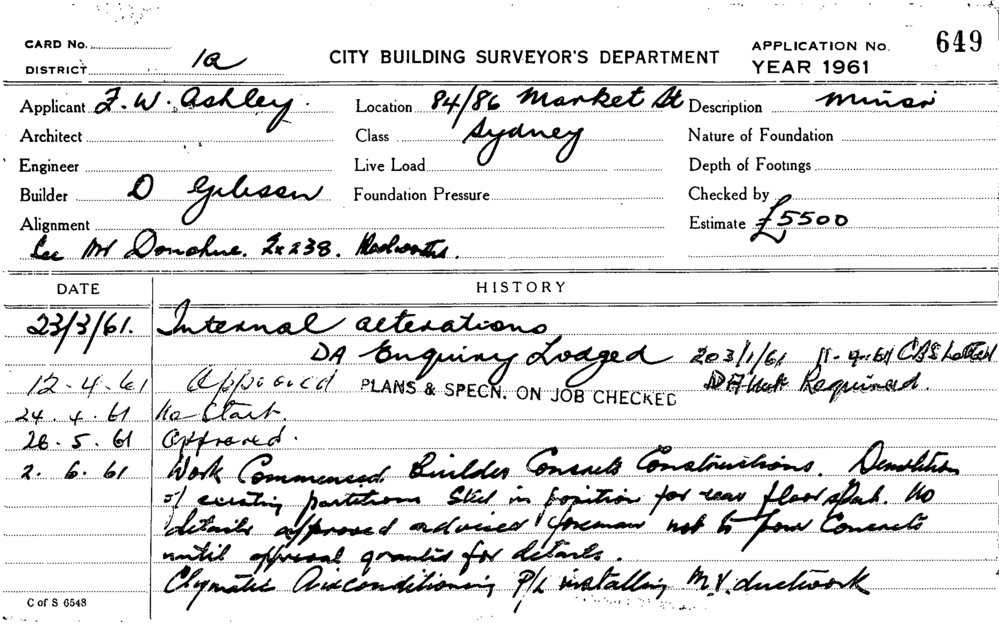 CARD No.
DISTRICT 1a
CITY BUILDING SURVEYOR'S DEPARTMENT
APPLICATION No. 649
YEAR 1961
Applicant F. W. Ashley.
Location 84/86 Market St
Description Minor
Architect
Class Sydney
Nature of Foundation
Engineer
Live Load
Depth of Footings
Builder D Gibson
Foundation Pressure
Checked by
Alignment
Estimate £5500
See Mr Donohue. Ex 238. Woolworths.
DATE HISTORY
23/3/61. Internal alterations
DA Enquiry Lodged 203/1/61 11-4-61 CBS Letter
12-4-61 Approved PLANS & SPECN. ON JOB CHECKED DA Not Required.
24.4.61 No Start.
26.5.61 Approved.
2.6.61 Work Commenced. Builder Concrete Constructions. Demolition
of existing partitions Steel in position for rear floor No
details approved advised foreman not to pour Concrete
until approval granted for details.
Clymatic Airconditioning P/L installing M.V. ductwork
C of S 6548